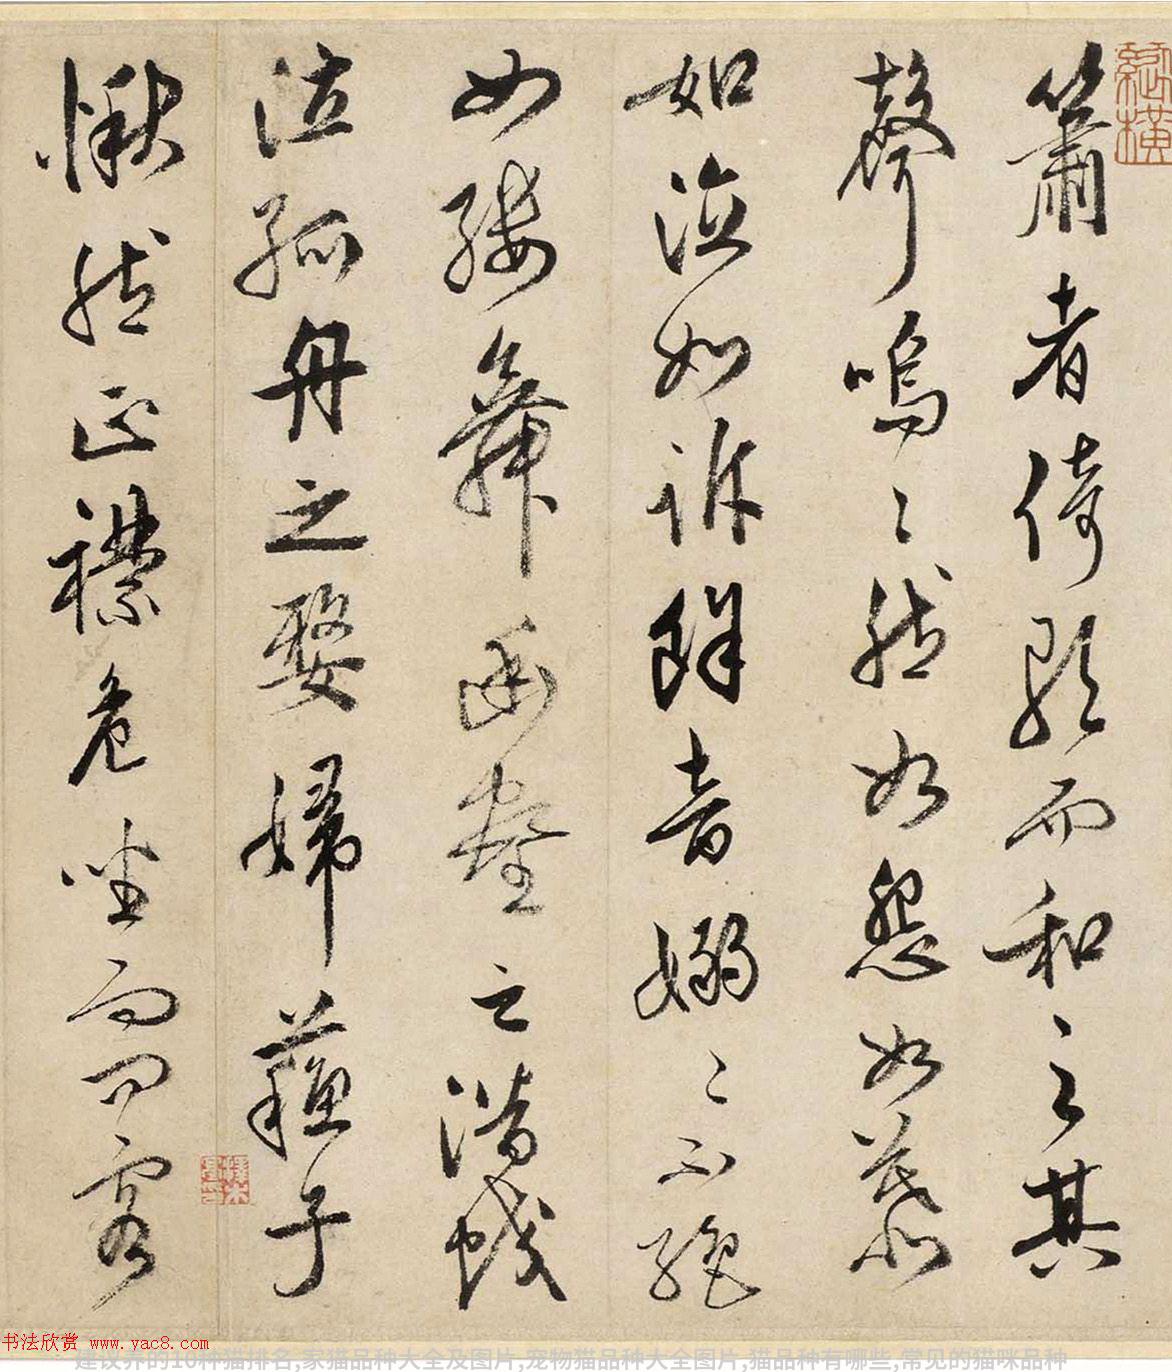 簫者倚歌而和之其
聲嗚〻然如怨如慕
如泣如訴餘音嫋〻不絕
如縷舞幽壑之潛蛟
泣孤舟之嫠婦蘇子
愀然正襟危坐而問客
书法欣赏 www.yac8.com
建议养的10种猫排名,家猫品种大全及图片,宠物猫品种大全图片,猫品种有哪些,常见的猫咪品种